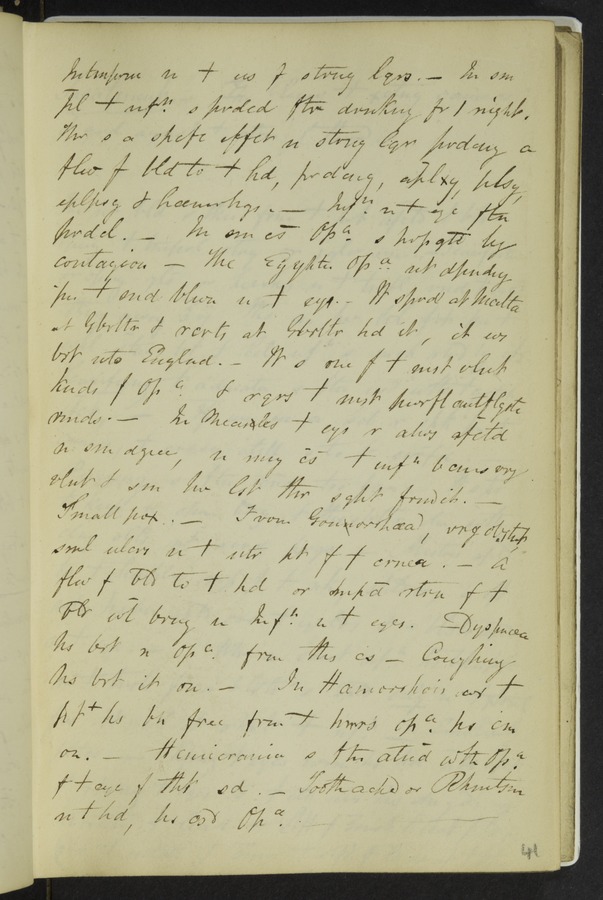 n + us f strong lqrs. — In sm
+ nfn. s prdcd ftr drnking fr 1 night.
Thr s a spcfc effct n strong lqr prdcng a
flw f bld to + hd, prdcng, aplxy, plsy,
eplpsy & hæmorhgs. — Infn. n + eye ftn
prdcd. — In sm cs Opa. s propgtd by
contagion — The Egyptn Opa. nt dpndng
+ snd blwn n + eys. — It sprd at Malta
at Gbrltr & rgrts at Gbrltr hd it, it ws
brt nto England. — It s one f + mst vlnt
kinds f Opa. & rqrs + mst pwrfl antflgstc
rmds. — In Measles + eys r alwys afctd
n sm dgree, n mny cs + infn bcms vry
vlnt & sm hv lst thr sght frm it. —
Small pox. — From Gonnorrhœa,
sml ulcrs n + utr pt f + cornea. — A
flw f bld to + hd or impd rtrn f +
bld wl brng n Infn. n + eyes. Dyspnœa
hs brt n Opa. frm ths cs — Coughing
hs brt it on. — In Hæmorrhois wn +
ptt hs bn free frm + hmrs opa. hs cm
on. — Hemicrania s thn atnd wth Opa.
f + eye f tht sd. — Toothache or Rhmtsm
n + hd, hs csd Opa.
41